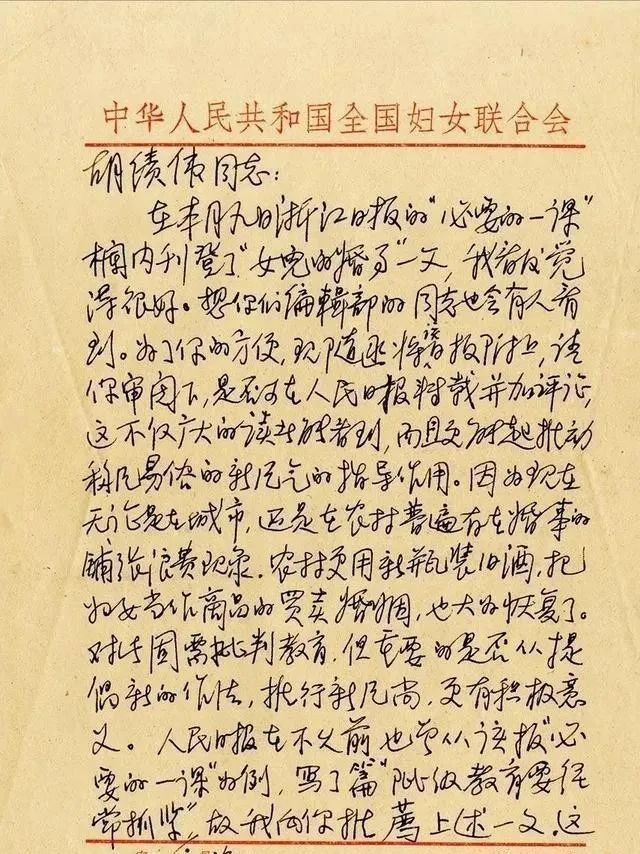 中华人民共和国全国妇女联合会
胡绩伟同志：
在本月九日浙江日报的“必要的一课”
栏内刊登了“女儿的婚事”一文，我看后觉
得很好。想你们编辑部的同志也会有人看
到。为了你的方便，现随函将该报附上，请
你审阅下，是否可在人民日报转载并加评论，
这不仅广大的读者能看到，而且更能起推动
移风易俗的新风气的指导作用。因为现在
无论是在城市，还是在农村普遍存在婚事的
铺张浪费现象。农村更用新瓶装旧酒，把
妇女当作商品的买卖婚姻，也大为恢复了。
对此固需批判教育，但重要的是否从提
倡新的作法，推行新风尚，更有积极意
义。人民日报在不久前也曾从该报“必
要的一课”为例，写了篇“阶级教育要经
常抓紧”，故我向你推荐上述一文。这